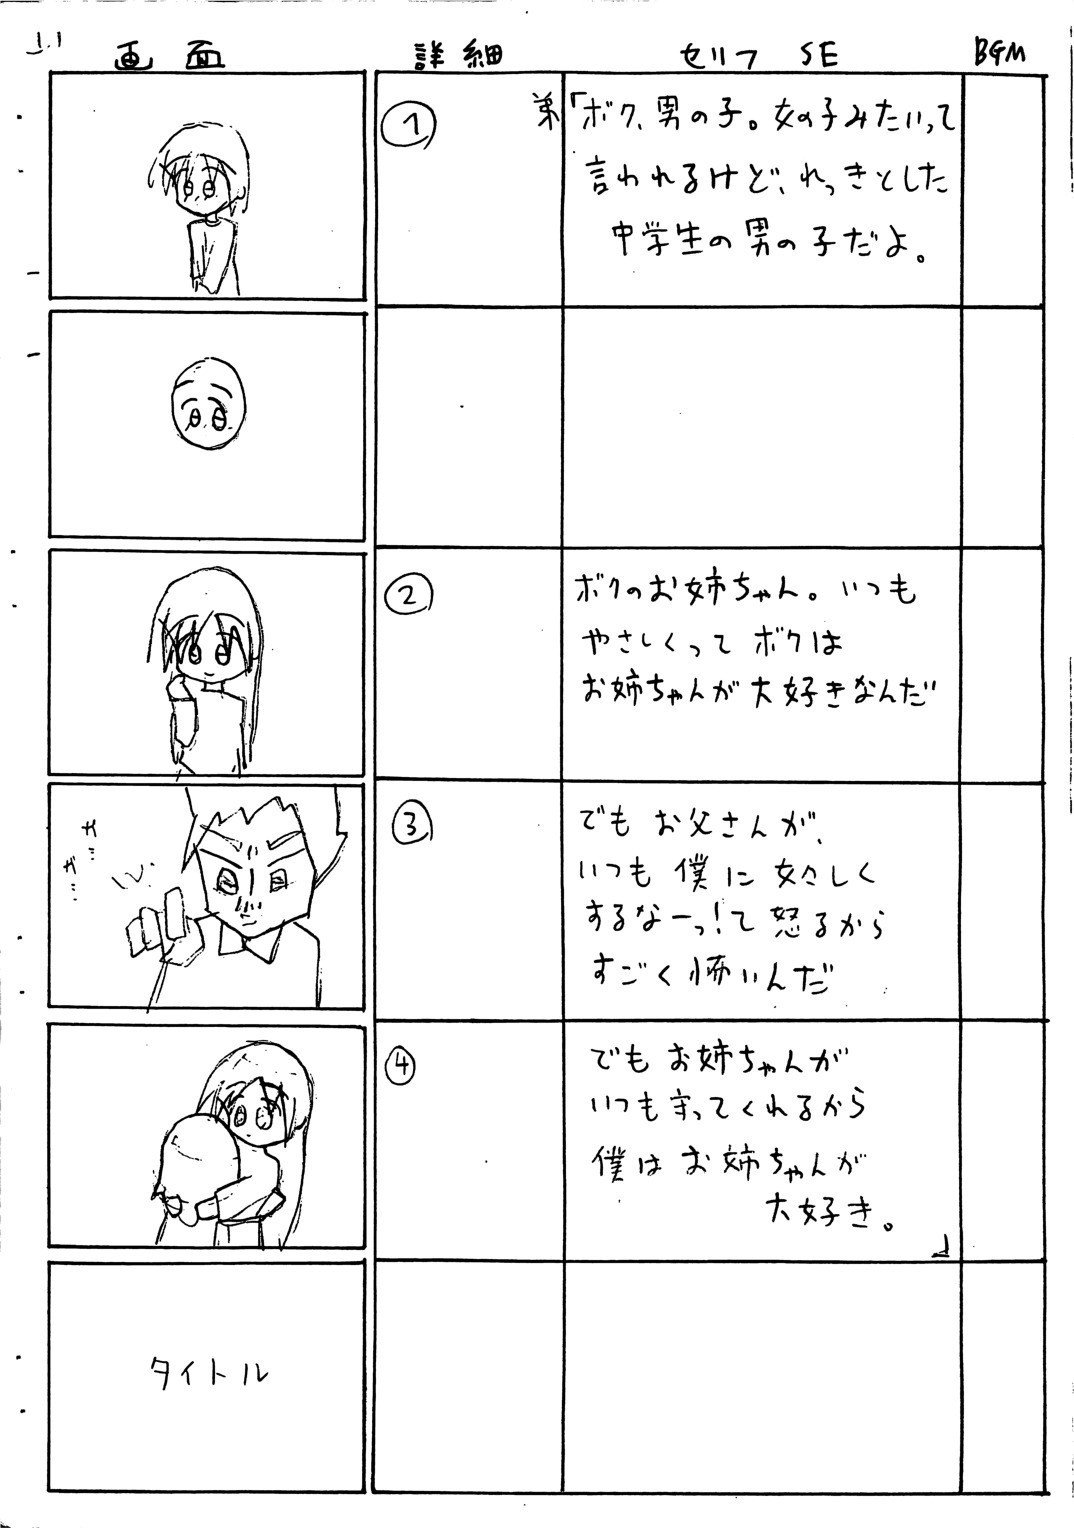 1.1
画面 詳細 セリフ SE BGM
① 弟「ボク、男の子。女の子みたいって
言われるけど、れっきとした
中学生の男の子だよ。
② ボクのお姉ちゃん。いつも
やさしくって ボクは
お姉ちゃんが大好きなんだ
ガミ
ガミ
③ でも お父さんが、
いつも 僕に 女々しく
するなーっ!て 怒るから
すごく 怖いんだ
④ でも お姉ちゃんが
いつも守ってくれるから
僕は お姉ちゃんが
大好き。
」
タイトル